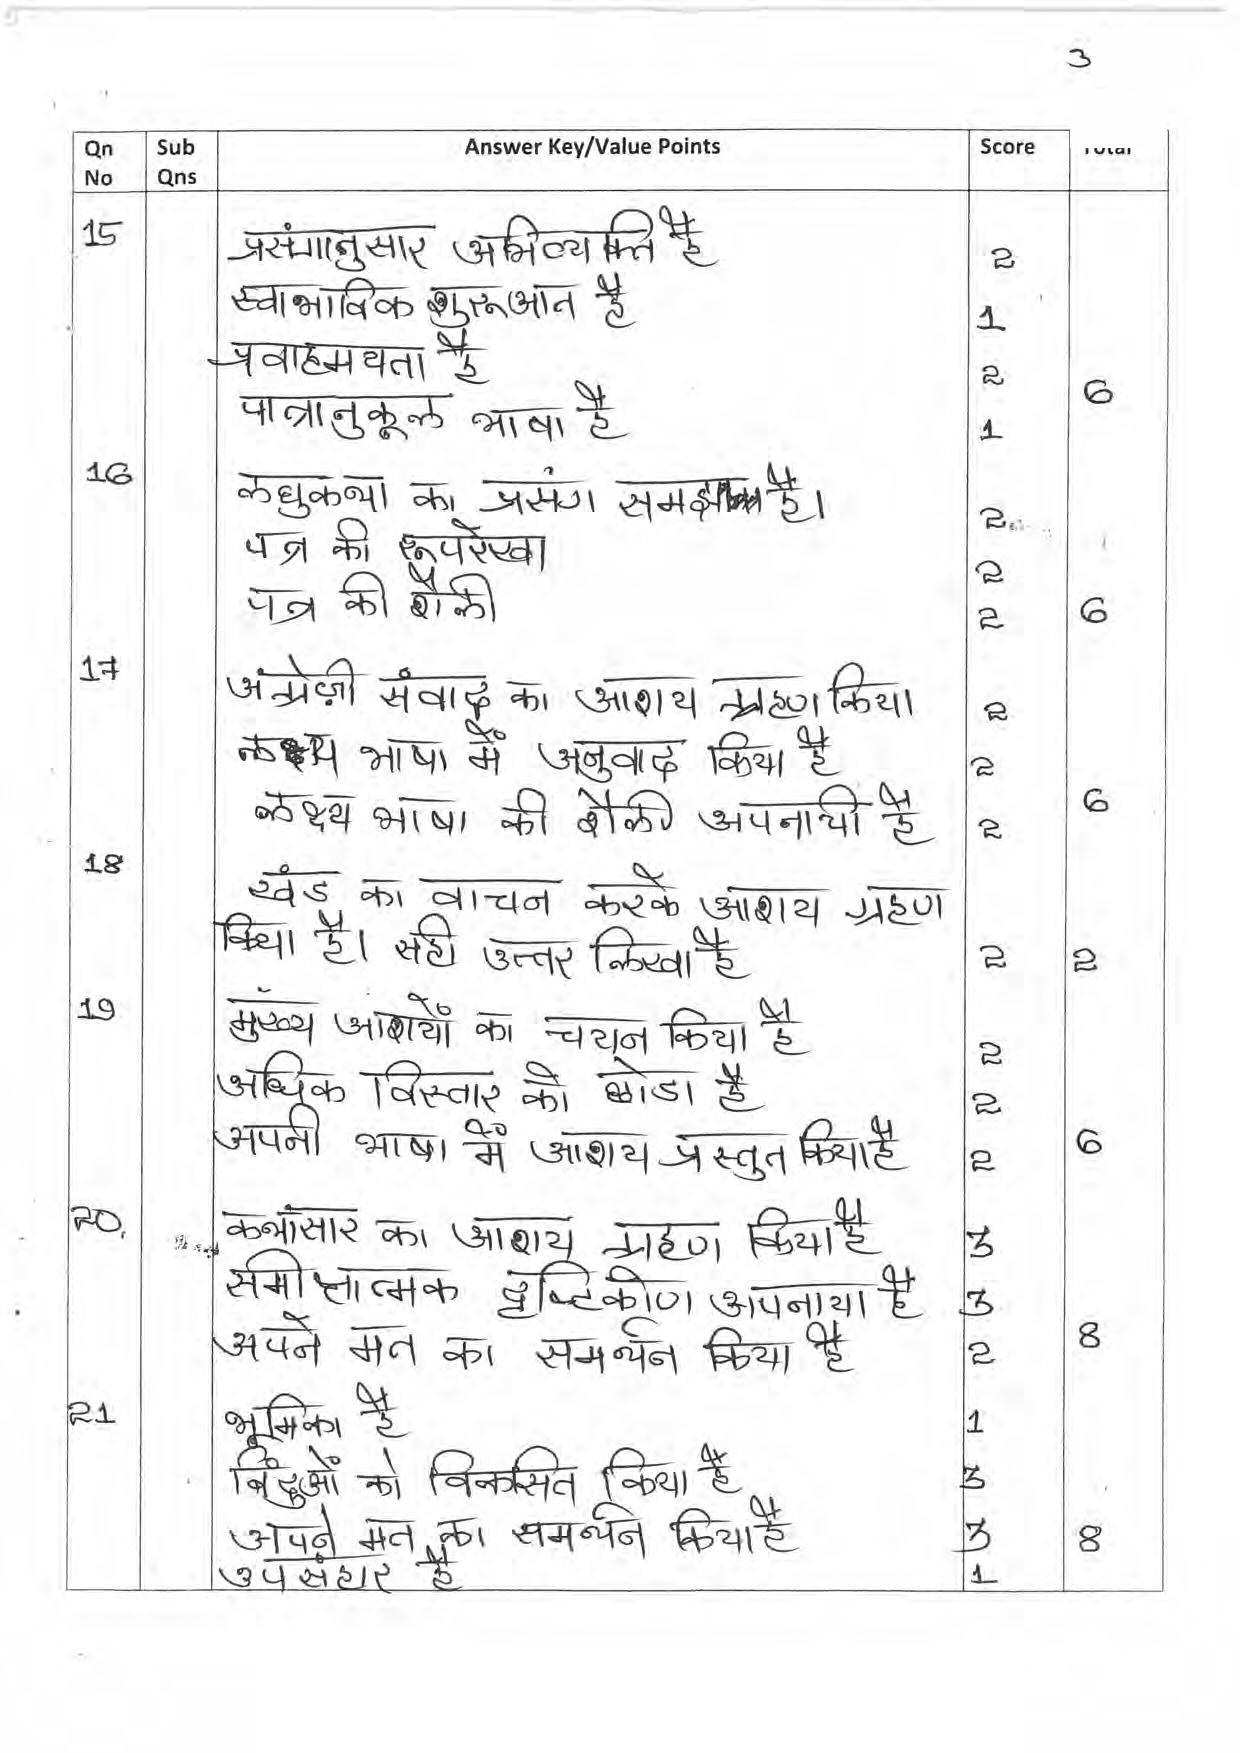 3
Qn No Sub Qns Answer Key/Value Points Score Total
15 प्रसंगानुसार अभिव्यक्ति है 2
स्वाभाविक शुरूआत है 1
प्रवाहमयता है 2
पात्रानुकूल भाषा है 1 6
16 लघुकथा का प्रसंग समझा है। 2
पत्र की रूपरेखा 2
पत्र की शैली 2 6
17 अंग्रेज़ी संवाद का आशय ग्रहण किया 2
लक्ष्य भाषा में अनुवाद किया है 2
लक्ष्य भाषा की शैली अपनायी है 2 6
18 खंड का वाचन करके आशय ग्रहण
किया है। सही उत्तर लिखा है 2 2
19 मुख्य आशयों का चयन किया है 2
अधिक विस्तार को छोडा है 2
अपनी भाषा में आशय प्रस्तुत किया है 2 6
20. कथासार का आशय ग्रहण किया है 3
समीक्षात्मक दृष्टिकोण अपनाया है 3
अपने मत का समर्थन किया है 2 8
21 भूमिका है 1
बिंदुओं को विकसित किया है 3
अपने मत का समर्थन किया है 3 8
उपसंहार है 1